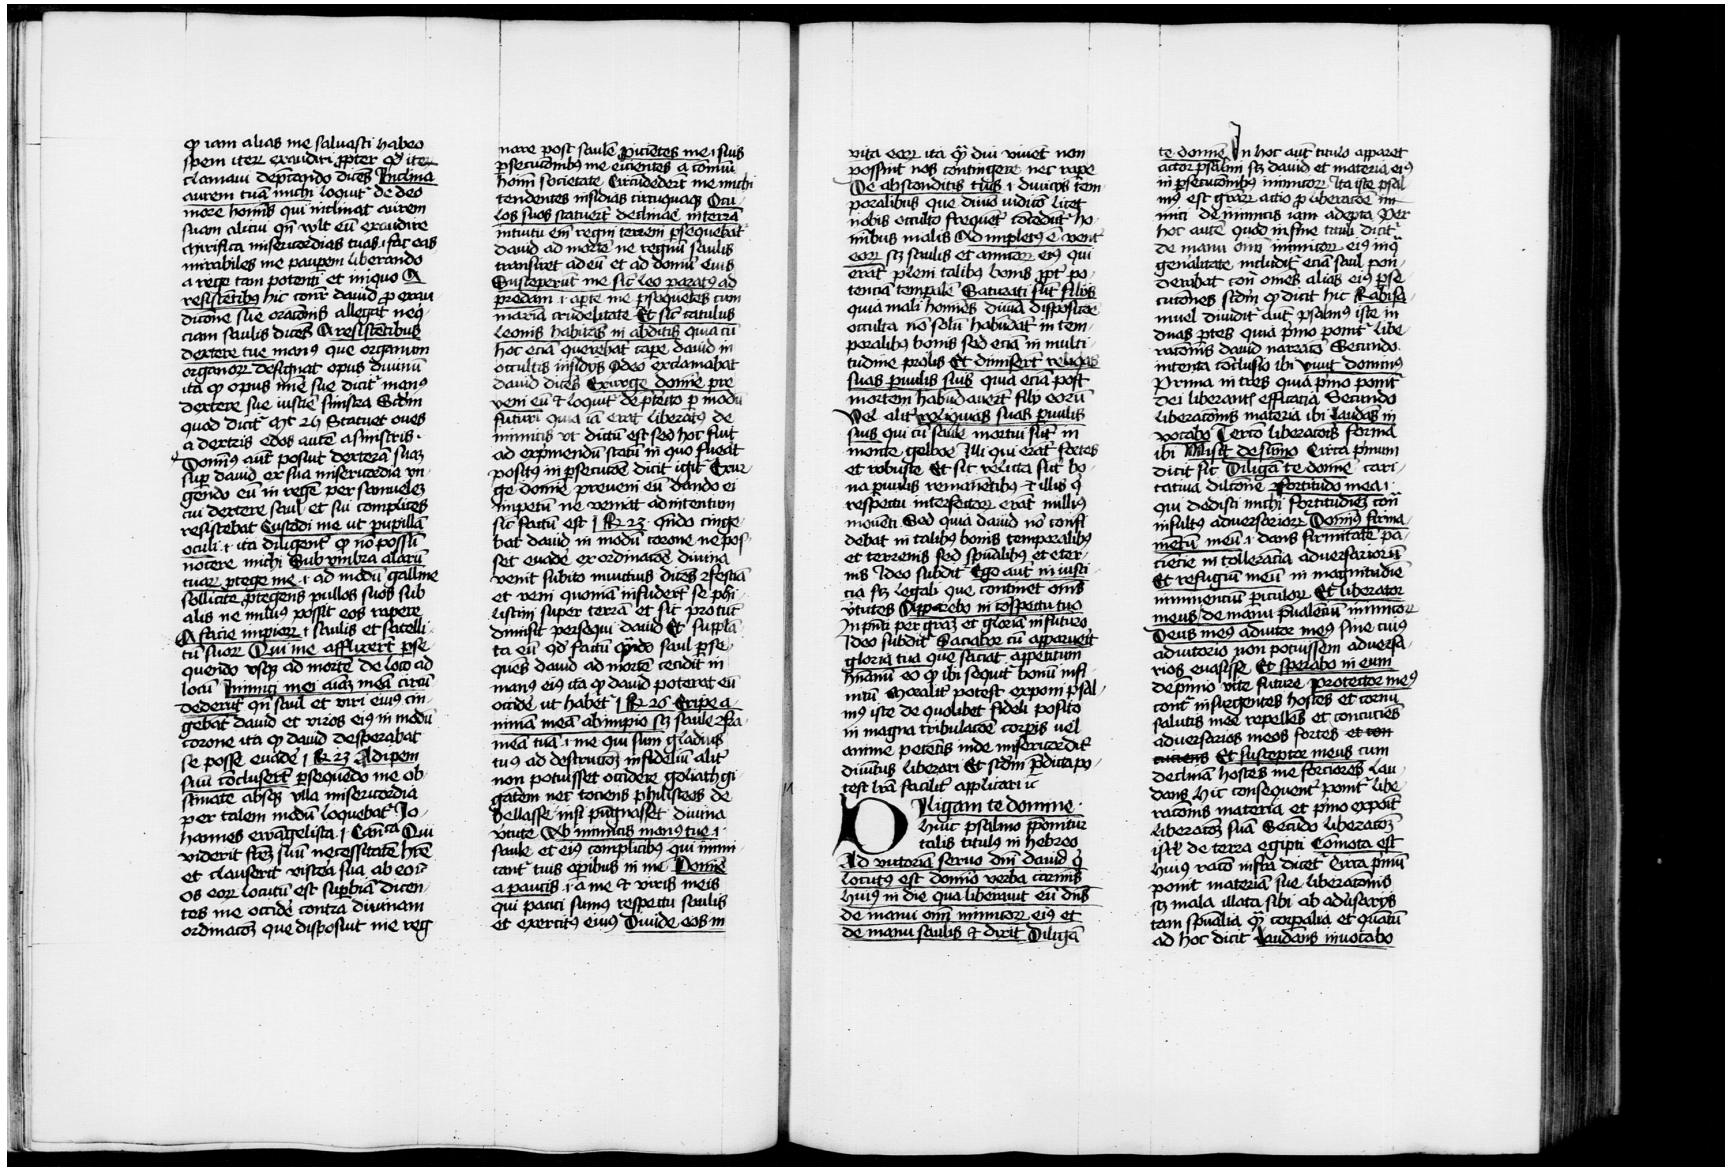 qp iam alias me saluasti habeo
spem iteꝝ exaudiri ꝓpter qd iteꝝ
clamaui deꝑcando dicēs Inclina
aurem tuā michi loquit᷑ de deo
more hominis qui inclinat aurem
suam alicui qn̄ vult eū exaudire
mirifica misericordias tuas .i. fac eas
mirabiles me pauꝑem liberando
a rege tam potenti et iniquo A
resistētibꝰ hic cont᷑ dauid ꝓ exau
dicione sue oracōnis allegat neq̄
ciam saulis dicēs A resistētibus
dextere tue manꝰ que organum
organoꝝ designat opus diuinū
ita qp opus mīe sue dicit᷑ manꝰ
dextere sue iusticie sinistra Scdm
quod dicit᷑ Mt 25 Statuet oues
a dextris edos autē a sinistris .
Dominꝰ aut̄ posuit dexterā suaꝫ
suꝑ dauid ex sua misericordia vn
gendo eū in regē per samuelem
cui dextere saul et sui complices
resistebāt Custodi me ut pupillā
oculi .i. ita diligent᷑ qp nō possīt
nocere michi Sub vmbra alarū
tuaꝝ ꝓtege me .i. ad modū galline
sollicite ꝓtegens pullos suos sub
alis ne miluꝰ possit eos rapere
A facie impioꝝ .i. saulis et satelli
tū suoꝝ Qui me afflixert̄ ꝑse
quendo vsqꝫ ad mortē de loco ad
locū Inimici mei aīaꝫ meā circū
dedert̄ qn̄ saul et viri eius cin
gebāt dauid et viros eiꝰ in modū
corone ita qp dauid desperabat
se posse euade᷑ 1 Rꝝ 23 Adipem
suū cōcluserūt ꝑsequēdo me ob
stinate absqꝫ vlla misericordia
per talem modū loquebat᷑ Jo
hannes ewāgelista .1. Canᶜᵃ Qui
viderit frēm suū necessitatē hr̄e
et clauserit viscēa sua ab eo
Os eoꝝ locutū est suꝑbiā dicen
tes me occide᷑ contra diuinam
ordinacōꝫ que disposuit me reg
nare post saulē Proicētes me .i. suis
ꝑsecucōnibꝰ me eicientes a cōmuni
hoīm societate Circūdedert̄ me michi
tendentes insidias circūquaqꝫ Ocu
los suos statuert̄ declinaē in terrā
intuitu em̄ regni terreni ꝑsequebat᷑
dauid ad mortē ne regnū saulis
transiret ad eū et ad domū eius
Susceperūt me sic̄ leo paratꝰ ad
predam .i. aꝑte me ꝑsequētes cum
maxīa crudelitate Et sic̄ catulus
leonis habitās in abditis quia tū
hoc eciā querebāt cape᷑ dauid in
occultis insidijs Ideo exclamabat
dauid dicēs Exurge domīe pre
veni eū et loquit᷑ de ꝑterito ꝑ modū
futuri quia iā erat liberatꝰ de
inimicis vt dictū est sed hoc fuit
ad exprimendū statū in quo fuerat
positꝰ in ꝑsecucōe dicit igit᷑ Exur
ge domīe preueni eū dando ei
impetū ne veniat ad intentum
sic̄ factū est 1 Rꝝ 23 . quādo cinge
bat dauid in modū corone ne pos
set euade᷑ ex ordinacōe diuina
venit subito nuncius dicēs festīa
et veni quoniā infudert̄ se phi
listim super terrā et sic ꝓ tūc
dimisit persequi dauid Et suppla
ta eū qd factū qn̄do saul ꝑse
quēs dauid ad mortē cecidit in
manꝰ eiꝰ ita qp dauid poterat eū
occide᷑ ut habet᷑ 1 Rꝝ 26 Eripe a
nimā meā ab impio scꝫ saule fra
meā tuā .i. me qui sum gladius
tuꝰ ad destruccōꝫ infideliū alit᷑
non potuisset occidere goliath gi
gātem nec tociens philisteos de
bellasse nisi pugnasset diuina
v̓tute Ab inimicis manꝰ tue .i.
saule et eiꝰ complicibꝰ qui inimi
cant᷑ tuis oꝑibus in me Domīe
a paucis .i. a me et viris meis
qui pauci sumꝰ respectu saulis
et exercitꝰ eius Diuide eos in
vita eoꝝ ita qp diu viuēt non
possint nos contingere nec rape᷑
De absconditis tuis .i. diuicijs tem
poralibus que diuīo iudicō licet
nobis occulto frequēt᷑ cōcedūt᷑ ho
minibus malis Adimpletꝰ ē vent᷑
eoꝝ scꝫ saulis et amicoꝝ eiꝰ qui
erāt pleni talibꝰ bonis ꝓpt᷑ po
tenciā tempalē Saturati sūt filijs
quia mali homines diuīa disposicōe
occulta nō solū habūdāt in tem
poralibꝰ bonis sed eciā in multi
tudine prolis Et dimisert̄ reliqas
suas ꝑuulis suis quia ecia post
mortem habūdauert̄ filij eorū
Vel alit᷑ reliquias suas ꝑuulis
suis qui cū saule mortui sūt in
monte gelboe Illi qui erāt fortes
et robuste Et sic relicta sūt bo
na ꝑuulis remanētibꝰ et illis q̄
respectu interfectoꝝ erāt nulliꝰ
momēti Sed quia dauid nō confi
debat in talibꝰ bonis temporalibꝰ
et terrenis sed spūalibꝰ et eter
nis Ideo subdit᷑ Ego aut̄ in iusti
cia scꝫ legali que continet om̄s
v̓tutes Apparebo in cōspectu tuo
In pn̄ti per grāꝫ et gloriā in futuro
Ideo subdit᷑ Saciabor cū apparueit
gloria tua que saciat appetitum
hūanū eo qp ibi sequit᷑ bonū infi
nitū Moralit᷑ potest exponi psal
mꝰ iste de quolibet fideli posito
in magna tribulacōe corpis vel
anime petētis inde misericordit᷑
diuinitus liberari Et scdm ꝑdicta po
test lr̄a facilit᷑ applicari ic̄
Diligam te domine .
Huic psalmo ꝓponitur
talis titulus in hebreo
Ad victoriā seruo dn̄i dauid q̄
locutꝰ est domīo verba carminis
huiꝰ in die qua liberauit eū dn̄s
de manu oīm inimicoꝝ eiꝰ et
de manu saulis et dixit Diligā
te domīe In hoc aut̄ titulo apparet
actor psalmi scꝫ dauid et materia eiꝰ
in ꝑsecucōnibꝰ inimicoꝝ Ita iste psal
mꝰ est graꝝ actio ꝓ liberacōe ini
mici de inimicis iam adepta Per
hoc autē quod in fine tituli dicit᷑
de manu oīm inimicoꝝ eiꝰ in q̄
gen̄alitate includit᷑ eciā saul pon
derabat cōn̄ omēs alias eiꝰ ꝑse
cutōnes scdm qp dicit hic Rabi sa
muel diuidit᷑ aut̄ psalmꝰ iste in
duas ꝑtes quia p̓mo ponit᷑ libe
racōnis dauid narracō Secundo
intenta cōclusio ibi viuit dominus
Prima in tres quia p̓mo ponit᷑
dei liberantis efficacia Secundo
liberacōnis materia ibi Laudās in
vocabo Tercō liberacōis forma
ibi Misit de sūmo Circa p̓mum
dicit sic Diligā te domīe cari
tatiua dilcōne Fortitudo mea .i.
qui dedisti michi fortitudīeꝫ cont᷑
insultꝰ adversarioꝝ Dominꝰ firma
mētū meū .i. dans firmitatē pa
ciencie in tollerācia adversarioꝝ
Et refugiū meū in magnitudīe
imminenciū ꝑiculoꝝ Et liberator
meus de manu ꝓualenciū inimicoꝝ
Deus meꝰ adiutor meꝰ sine cuiꝰ
adiutorio non potuissem adversa
rios euasisse Et sperabo in eum
de p̓mio vite future Protector meꝰ
cont᷑ insurgentes hostes et cornu
salutis mee repellēs et concuciēs
adversarios meos fortes et con
cuciens Et susceptor meus cum
declināˉ hostes me forciores Lau
dans Hic consequent᷑ ponit᷑ libe
racōnis materia et p̓mo exponit᷑
liberacōꝫ suā Secūdo liberacōꝫ
isrl̄ de terra egipti Cōmota est
huius racō infra dicet᷑ Circa p̓mū
ponit materiā sue liberacōnis
scꝫ mala illata sibi ab adūsarijs
tam spūalia qp corpalia et quātū
ad hoc dicit Laudans inuocabo